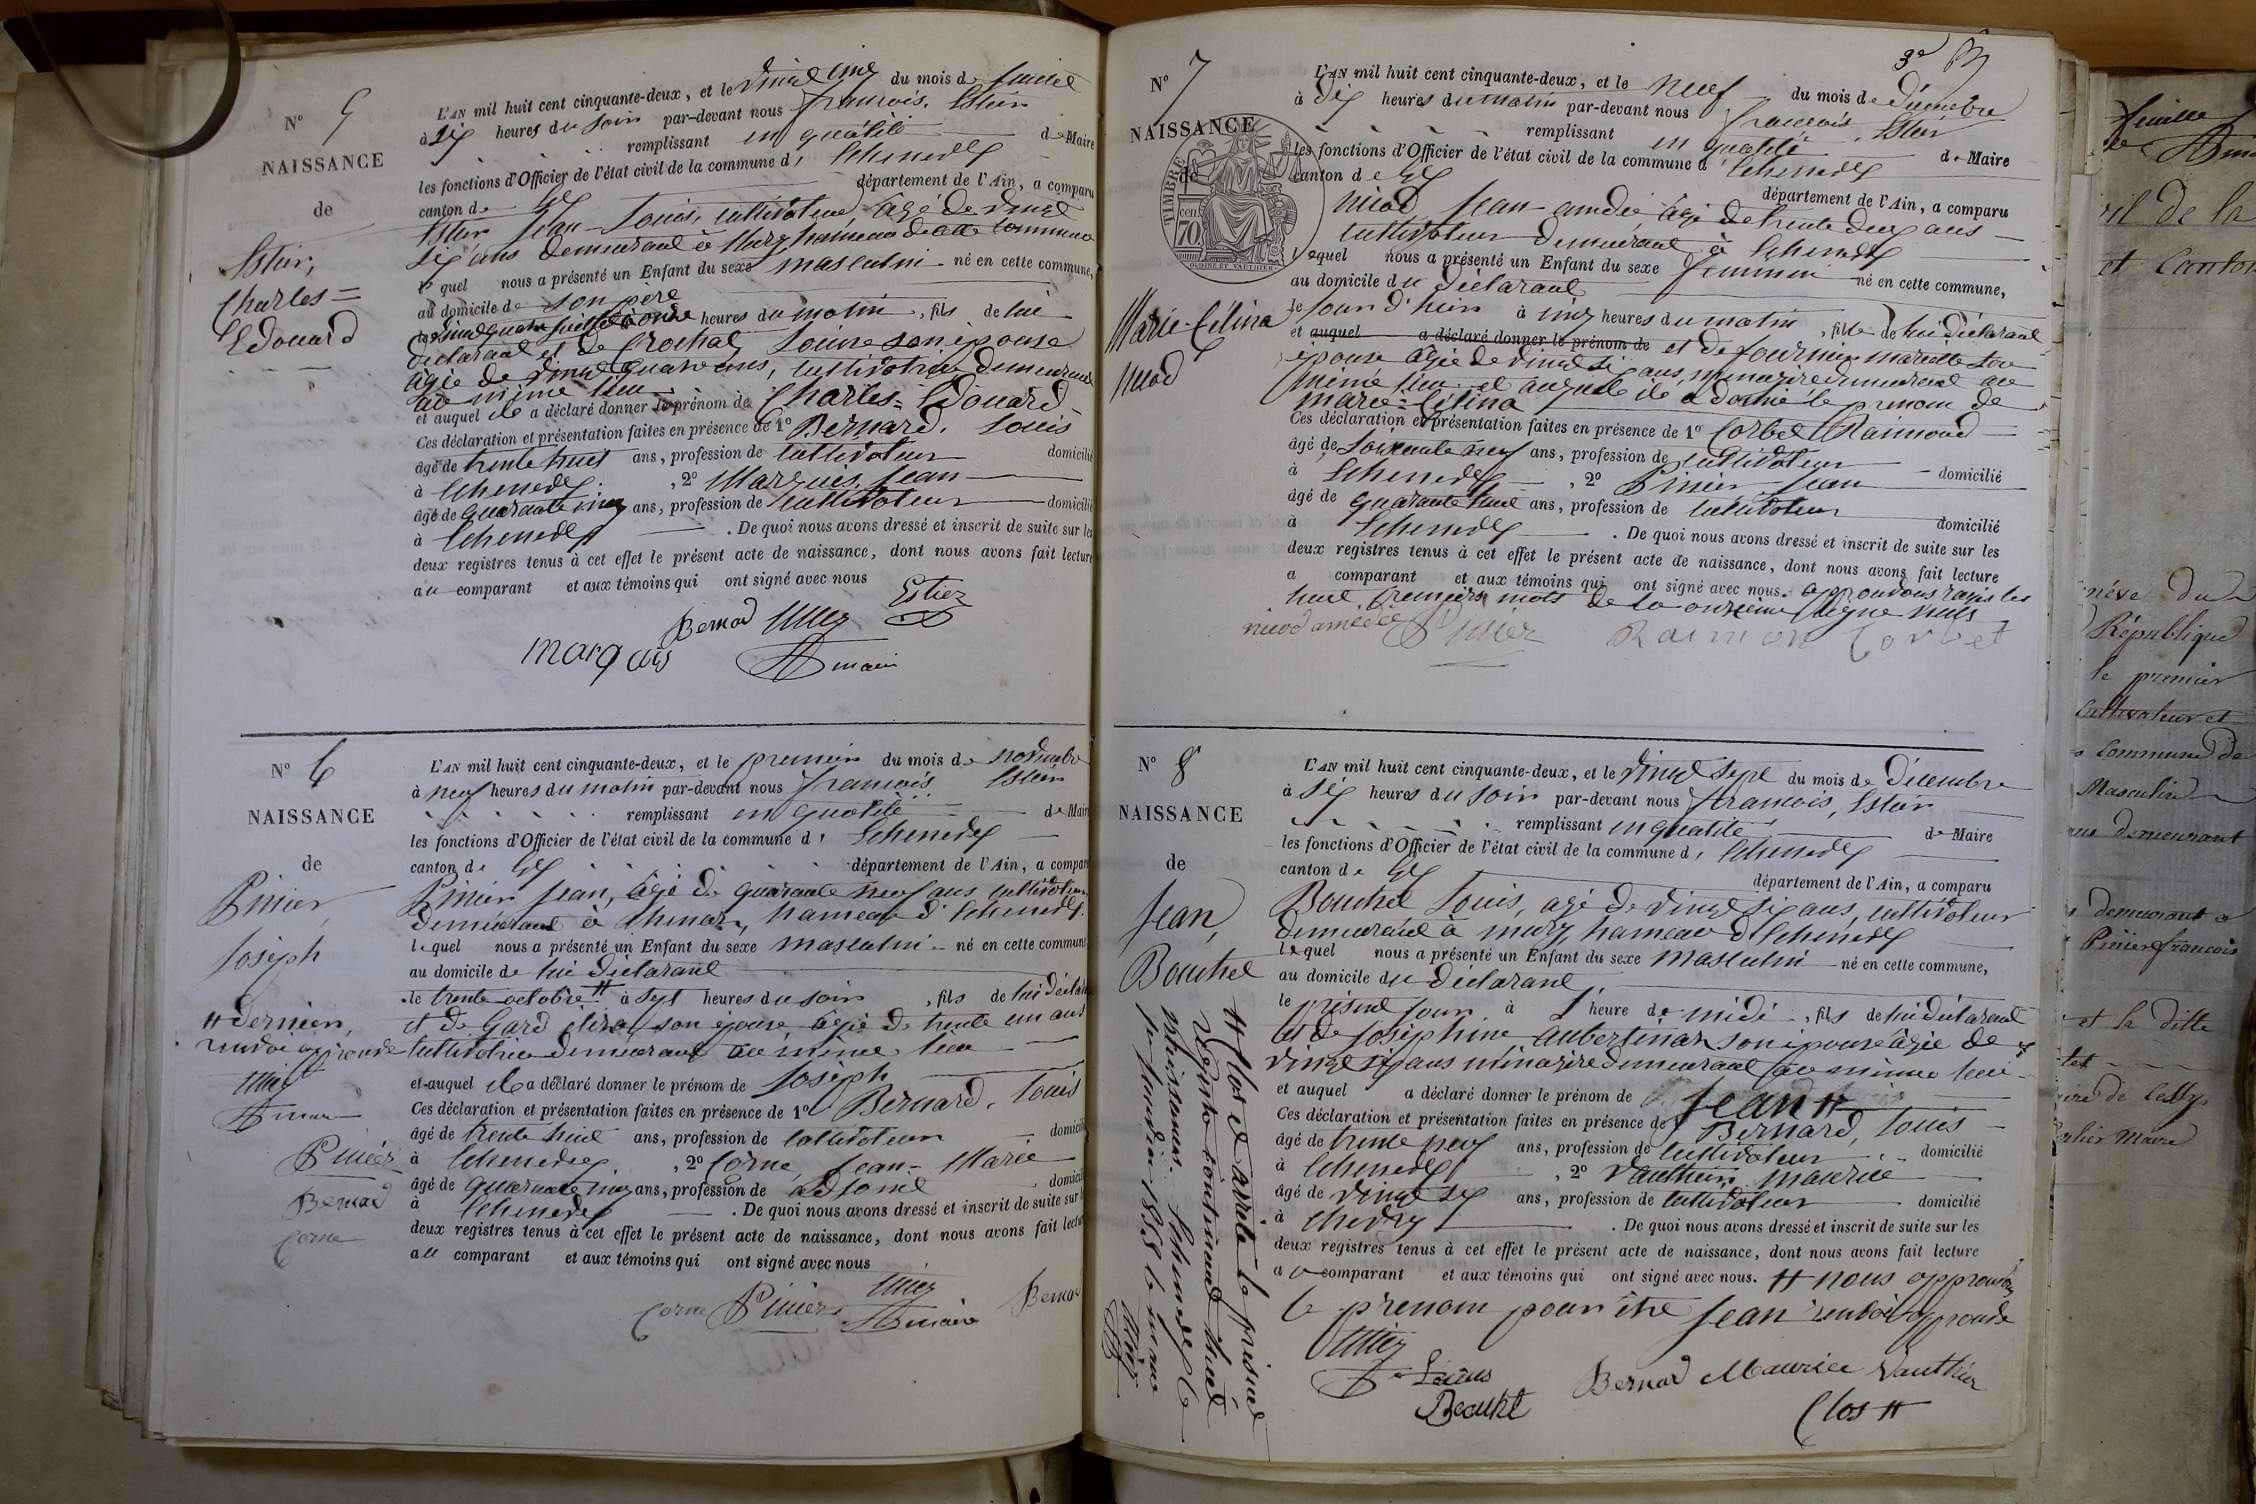 N° 5
NAISSANCE
de
Estier,
Charles=
Edouard
L'AN mil huit cent cinquante-deux, et le vingt cinq du mois de juillet
à six heures du soir par-devant nous françois, Estier
remplissant en qualité de Maire
les fonctions d'Officier de l'état civil de la commune d' Echenevex
canton de Gex département de l'Ain, a comparu
Estier Jean-Louis, cultivateur, âgé de vingt
six ans demeurant à Mury hameau de cette commune
lequel nous a présenté un Enfant du sexe masculin né en cette commune,
au domicile de son père
le vingt quatre juillet à onze heures du matin, fils de lui
déclarant et de Crochat Louise son épouse
âgée de vingt quatre ans, cultivatrice demeurant
au même lieu
et auquel il a déclaré donner le prénom de Charles=Edouard
Ces déclaration et présentation faites en présence de 1° Bernard, Louis
âgé de trente huit ans, profession de cultivateur domicilié
à Echenevex, 2° Marquis, Jean
âgé de quarante cinq ans, profession de cultivateur domicilié
à Echenevex. De quoi nous avons dressé et inscrit de suite sur les
deux registres tenus à cet effet le présent acte de naissance, dont nous avons fait lecture
au comparant et aux témoins qui ont signé avec nous
Bernard Estier
marquis maire
N° 6
NAISSANCE
de
Pinier,
Joseph
# dernier,
renvoi approuvé
Pinier
Bernard
Corne
L'AN mil huit cent cinquante-deux, et le premier du mois de novembre
à neuf heures du matin par-devant nous françois, Estier
remplissant en qualité de Maire
les fonctions d'Officier de l'état civil de la commune d' Echenevex
canton de Gex département de l'Ain, a comparu
Pinier Jean, âgé de quarante neuf ans cultivateur
demeurant à Chenaz, hameau d'Echenevex
lequel nous a présenté un Enfant du sexe masculin né en cette commune
au domicile de lui déclarant
le trente octobre # à sept heures du soir, fils de lui déclarant
et de Gard son épouse, âgée de trente un ans
cultivatrice demeurant au même lieu
et auquel il a déclaré donner le prénom de Joseph
Ces déclaration et présentation faites en présence de 1° Bernard, Louis
âgé de trente huit ans, profession de cultivateur domicilié
à Echenevex, 2° Corne, Jean-Marie
âgé de quarante cinq ans, profession de domicilié
à Echenevex. De quoi nous avons dressé et inscrit de suite sur les
deux registres tenus à cet effet le présent acte de naissance, dont nous avons fait lecture
au comparant et aux témoins qui ont signé avec nous
Corne Pinier maire Bernard
3e
N° 7
NAISSANCE
de
TIMBRE
70 cen
OUDINÉ ET VAUTHIER
Marie-Célina
Niod
L'AN mil huit cent cinquante-deux, et le neuf du mois de décembre
à dix heures du matin par-devant nous françois, Estier
remplissant en qualité de Maire
les fonctions d'Officier de l'état civil de la commune d' Echenevex
canton de Gex département de l'Ain, a comparu
Niod Jean-amédée âgé de trente deux ans
cultivateur demeurant à Echenevex
lequel nous a présenté un Enfant du sexe féminin né en cette commune,
au domicile du déclarant
le jour d'hier à cinq heures du matin, fille de lui déclarant
et auquel a déclaré donner le prénom de et de fournier mariette son
épouse âgée de vingt six ans, ménagère demeurant au
même lieu et auquel il a donné le prénom de
marie=Célina
Ces déclaration et présentation faites en présence de 1° Corbet Raimond
âgé de soixante neuf ans, profession de cultivateur
à Echenevex, 2° Pinier Jean domicilié
âgé de quarante huit ans, profession de cultivateur
à Echenevex domicilié. De quoi nous avons dressé et inscrit de suite sur les
deux registres tenus à cet effet le présent acte de naissance, dont nous avons fait lecture
a comparant et aux témoins qui ont signé avec nous. approuvons rayés les
huit premiers mots de la onzième ligne nuls
niod amédée Pinier Raimon Corbet
N° 8
NAISSANCE
de
Jean,
Bouchet
# Clos et arrêté le présent
registre contenant huit
naissances. Echenevex le
1er janvier 1853 le maire
L'AN mil huit cent cinquante-deux, et le vingt sept du mois de décembre
à six heures du soir par-devant nous françois, Estier
remplissant en qualité de Maire
les fonctions d'Officier de l'état civil de la commune d' Echenevex
canton de Gex département de l'Ain, a comparu
Bouchet Louis, âgé de vingt six ans, cultivateur
demeurant à mury, hameau d'Echenevex
lequel nous a présenté un Enfant du sexe masculin né en cette commune,
au domicile du déclarant
le présent jour à l'heure de midi, fils de lui déclarant
et de Joséphine aubertinaz son épouse âgée de
vingt six ans ménagère demeurant au même lieu
et auquel a déclaré donner le prénom de Jean #
Ces déclaration et présentation faites en présence de Bernard, Louis
âgé de trente neuf ans, profession de cultivateur domicilié
à Echenevex, 2° Vauthier maurice
âgé de vingt six ans, profession de cultivateur domicilié
à Chevry. De quoi nous avons dressé et inscrit de suite sur les
deux registres tenus à cet effet le présent acte de naissance, dont nous avons fait lecture
au comparant et aux témoins qui ont signé avec nous. # nous approuvons
le prénom pour être Jean renvoi approuvé
Louis Bernard Maurice Vauthier
Bouchet
Clos #
feuille
vil de la
et Canton
nève du
République
le premier
Cultivateur et
Commune de
Masculin
demeurant
demeurant à
Pinier françois
et la ditte
de Cessy
Maire